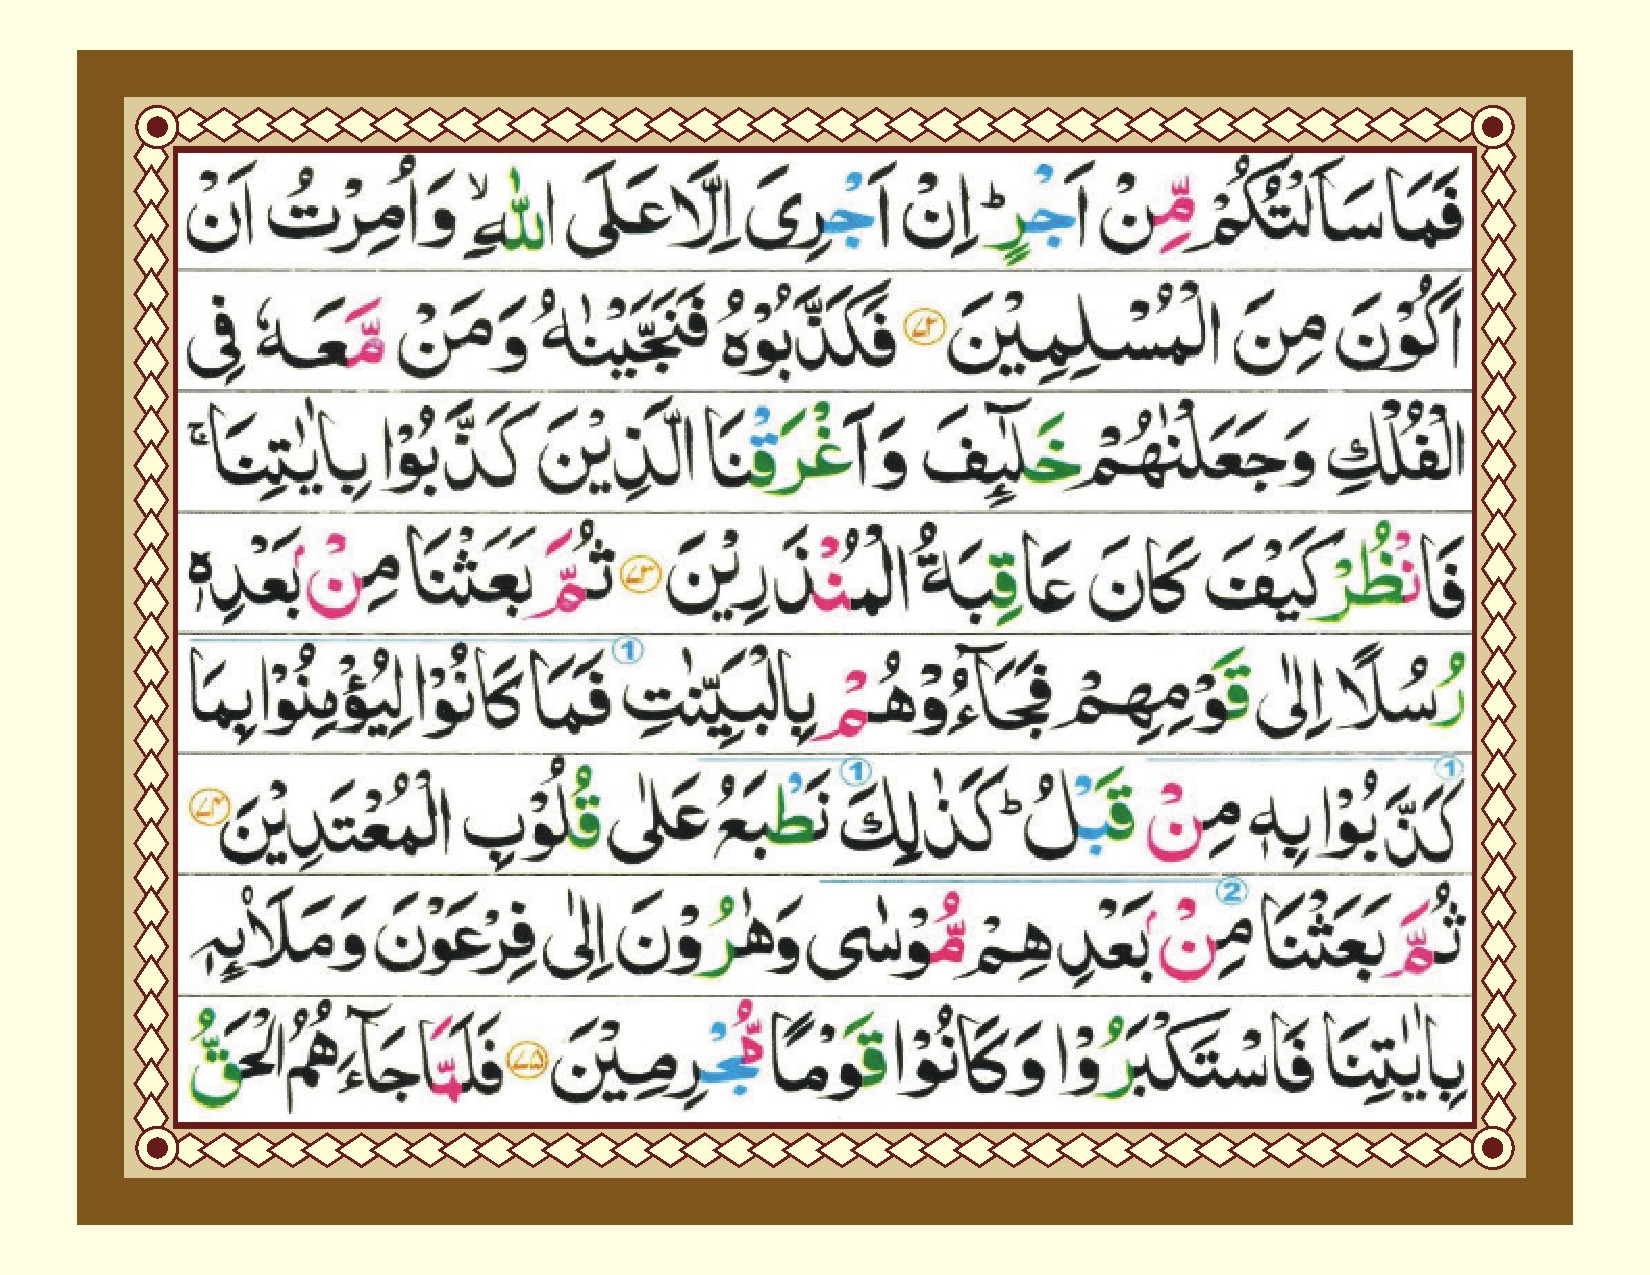 فَمَا سَاَلْتُكُمْ مِّنْ اَجْرٍ ؕ اِنْ اَجْرِیَ اِلَّا عَلَی اللّٰهِ ۙ وَاُمِرْتُ اَنْ
اَكُوْنَ مِنَ الْمُسْلِمِیْنَ ۷۲ فَكَذَّبُوْهُ فَنَجَّیْنٰهُ وَمَنْ مَّعَهٗ فِی
الْفُلْكِ وَجَعَلْنٰهُمْ خَلٰٓىِٕفَ وَاَغْرَقْنَا الَّذِیْنَ كَذَّبُوْا بِاٰیٰتِنَا ۚ
فَانْظُرْ كَیْفَ كَانَ عَاقِبَةُ الْمُنْذَرِیْنَ ۷۳ ثُمَّ بَعَثْنَا مِنْۢ بَعْدِهٖ
رُسُلًا اِلٰی قَوْمِهِمْ فَجَآءُوْهُمْ بِالْبَیِّنٰتِ ① فَمَا كَانُوْا لِیُؤْمِنُوْا بِمَا
① كَذَّبُوْا بِهٖ مِنْ قَبْلُ ؕ كَذٰلِكَ ① نَطْبَعُ عَلٰی قُلُوْبِ الْمُعْتَدِیْنَ ۷۴
ثُمَّ بَعَثْنَا مِنْۢ ② بَعْدِهِمْ مُّوْسٰی وَهٰرُوْنَ اِلٰی فِرْعَوْنَ وَمَلَا۟ىِٕهٖ
بِاٰیٰتِنَا فَاسْتَكْبَرُوْا وَكَانُوْا قَوْمًا مُّجْرِمِیْنَ ۷۵ فَلَمَّا جَآءَهُمُ الْحَقُّ